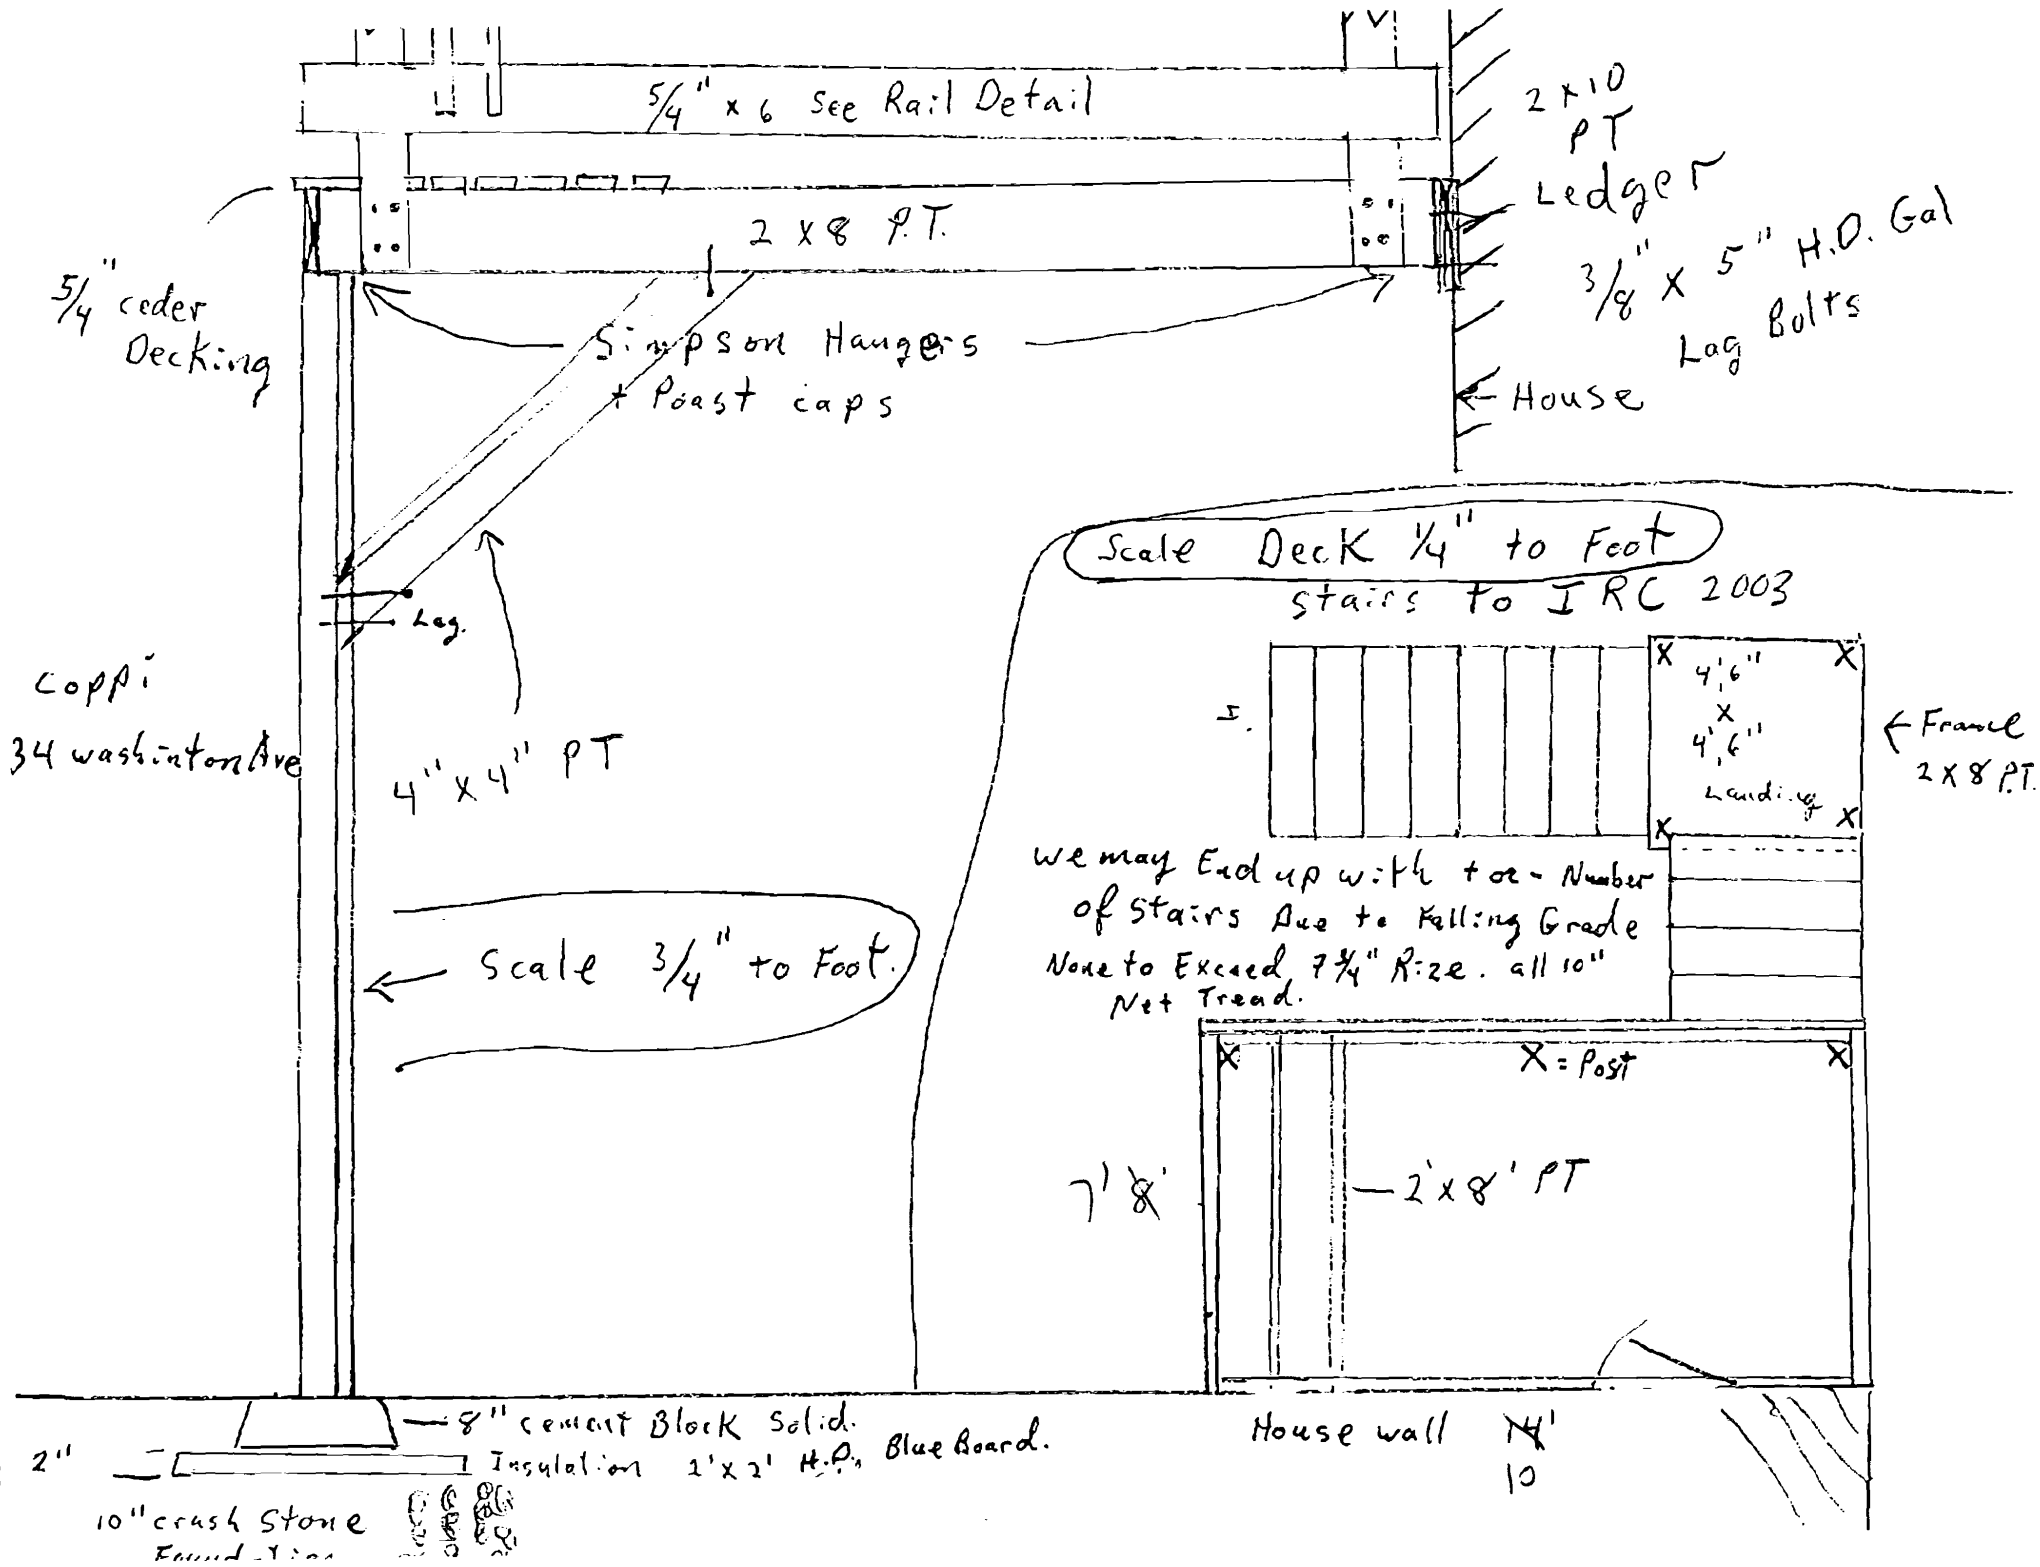 5/4" x 6 See Rail Detail
2 x 10
PT
Ledger
3/8" x 5" H.D. Gal
Lag Bolts
2 x 8 P.T.
5/4" ceder
Decking
Simpson Hangers
+ Poast caps
House
Scale Deck 1/4" to Foot
stairs to IRC 2003
Lag.
Coppi
34 washinton Ave
4" x 4" PT
X X
4'6"
x
4'6"
Landing
X X
Frame
2 x 8 P.T.
we may End up with + or - Number
of Stairs Due to Falling Grade
None to Exceed 7 3/4" Rize. all 10"
Net Tread.
Scale 3/4" to Foot.
X X = Post X
7' 8'
2' x 8' PT
8" cement Block Solid.
2" Insulation 2' x 2' H.D. Blue Board.
House wall 14'
10
10" crush Stone
Foundation